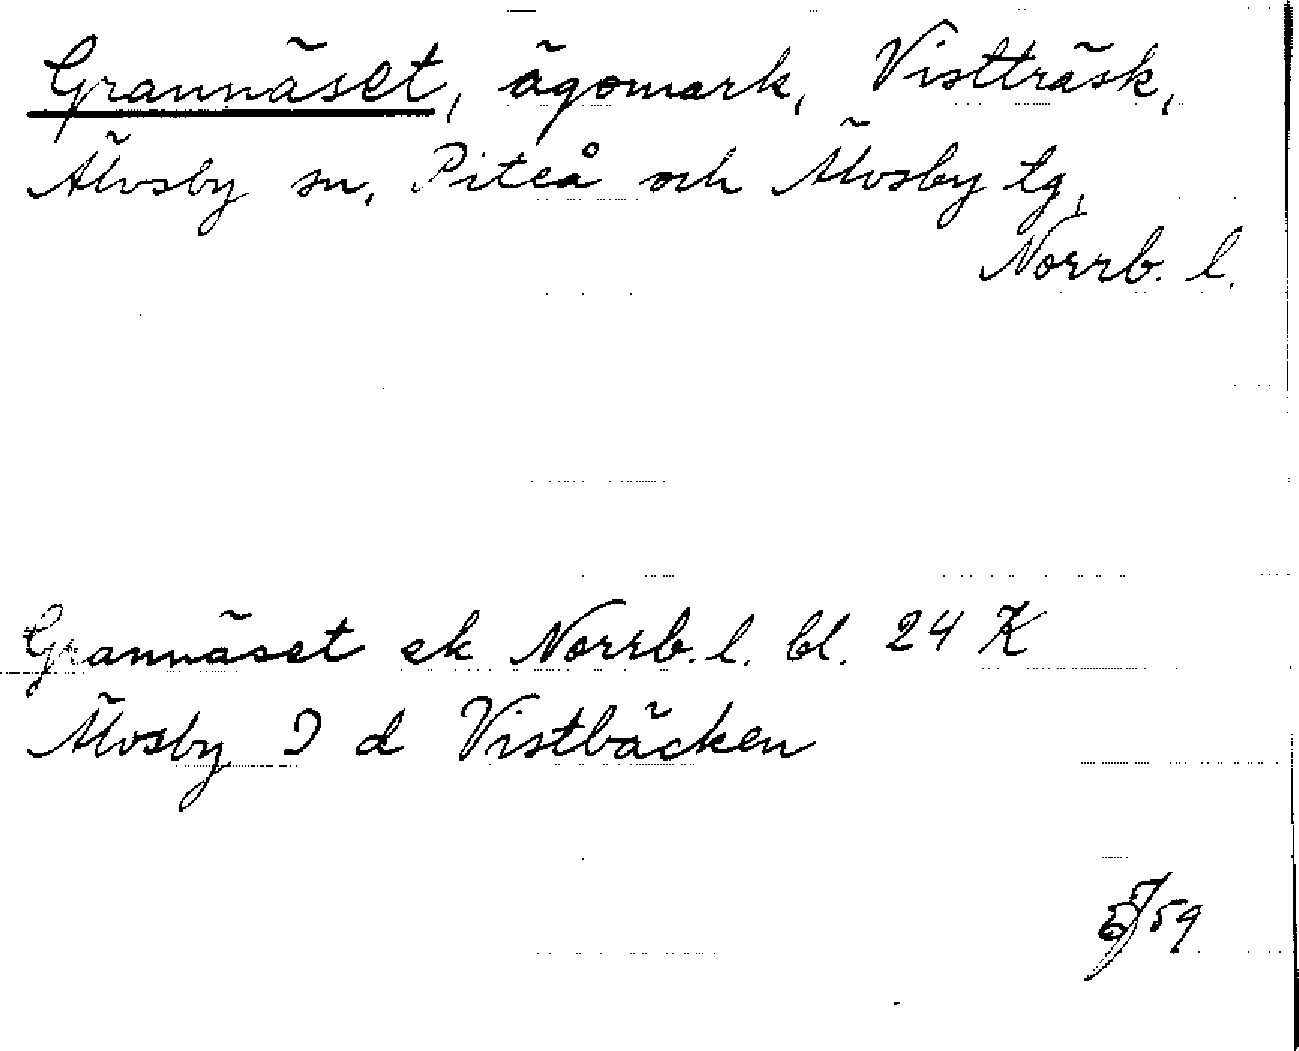 Grannäset, ägomark, Vistträsk,
Älvsby sn, Piteå och Älvsby tg,
Norrb. l.
Grannäset ek Norrb. l. bl. 24 K
Älvsby I d Vistbäcken
59